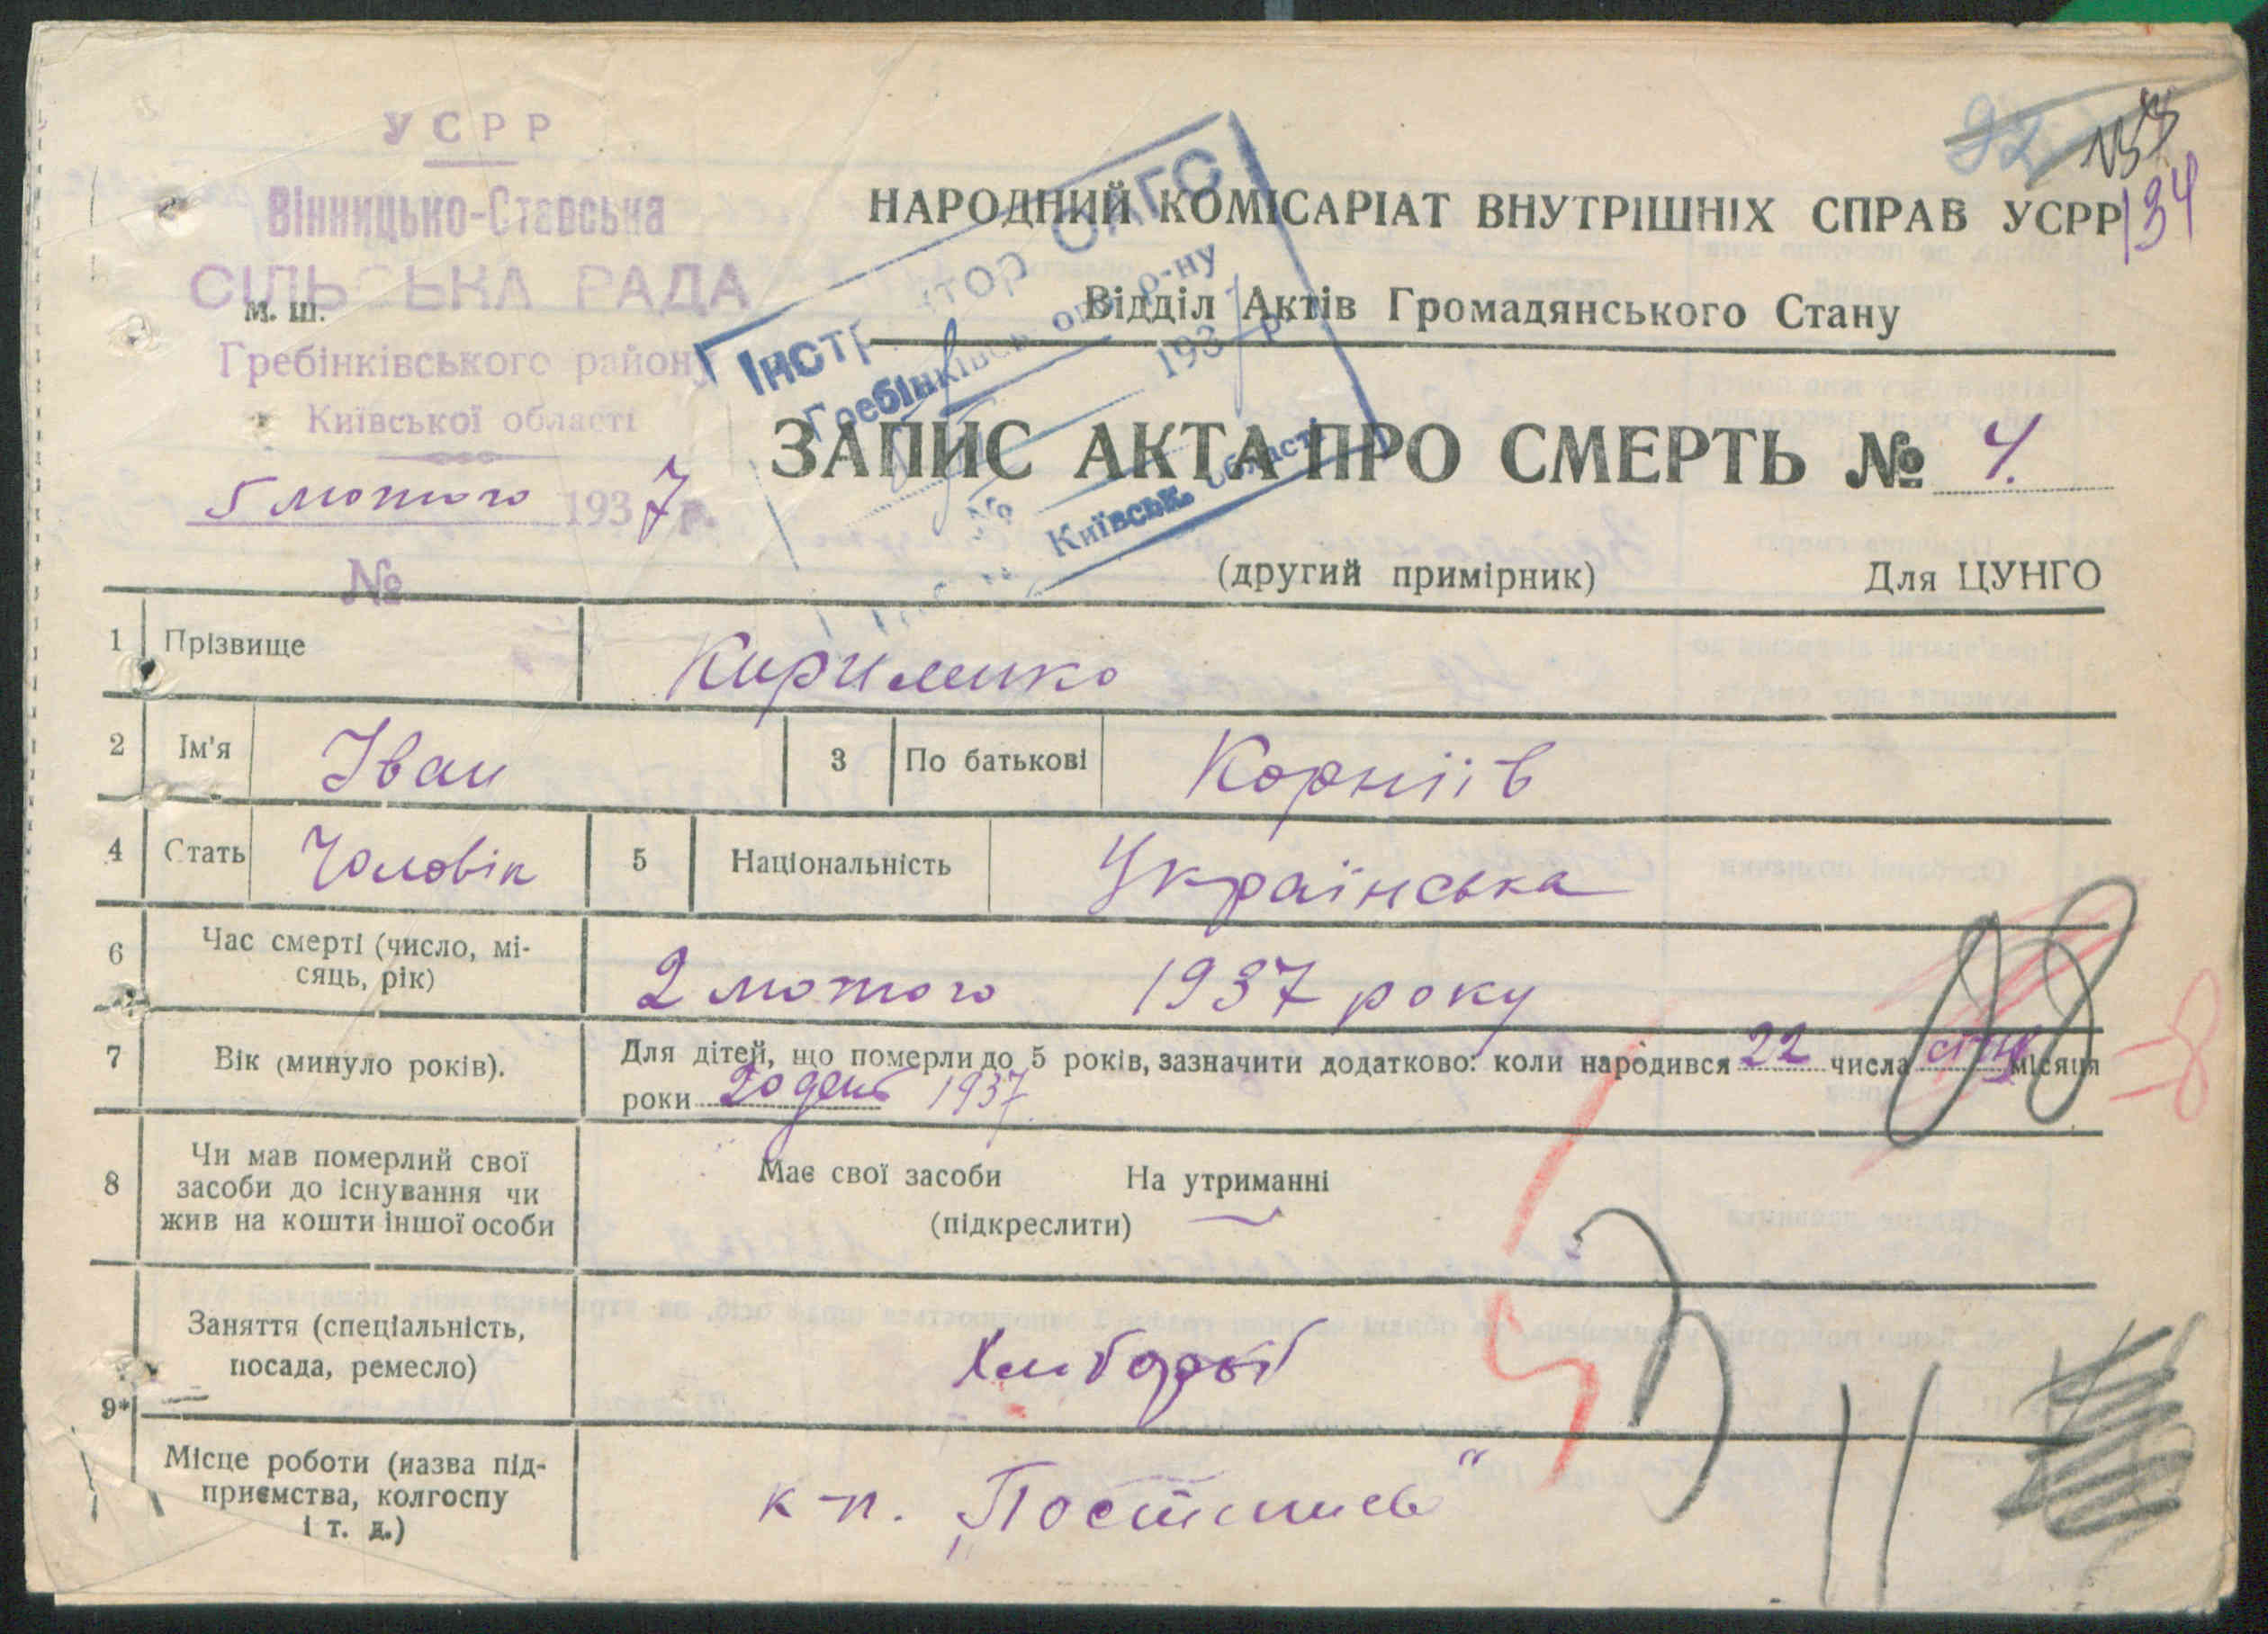 УСРР
Вінницько-Ставська
СІЛЬСЬКА РАДА
М. Ш.
Гребінківського району
Київської області
5 лютого 1937 р.
№
92
133
134
НАРОДНИЙ КОМІСАРІАТ ВНУТРІШНІХ СПРАВ УСРР
Відділ Актів Громадянського Стану
Інстр тор ОАГС
Гребінківськ ого р-ну
193 7 р.
№
Київськ. області
ЗАПИС АКТА ПРО СМЕРТЬ № 4.
(другий примірник) Для ЦУНГО
1 Прізвище Кириленко
2 Ім'я Іван 3 По батькові Корніїв
4 Стать Чоловік 5 Національність Українська
6 Час смерті (число, мі-
сяць, рік) 2 лютого 1937 року
7 Вік (минуло років). Для дітей, що померли до 5 років, зазначити додатково: коли народився 22 числа січ місяця
роки 20 день 1937
8 Чи мав померлий свої
засоби до існування чи
жив на кошти іншої особи
Має свої засоби На утриманні
(підкреслити)
9*) Заняття (спеціальність,
посада, ремесло) Хлібороб
Місце роботи (назва під-
приємства, колгоспу
і т. д.) к-п. „Постишев"